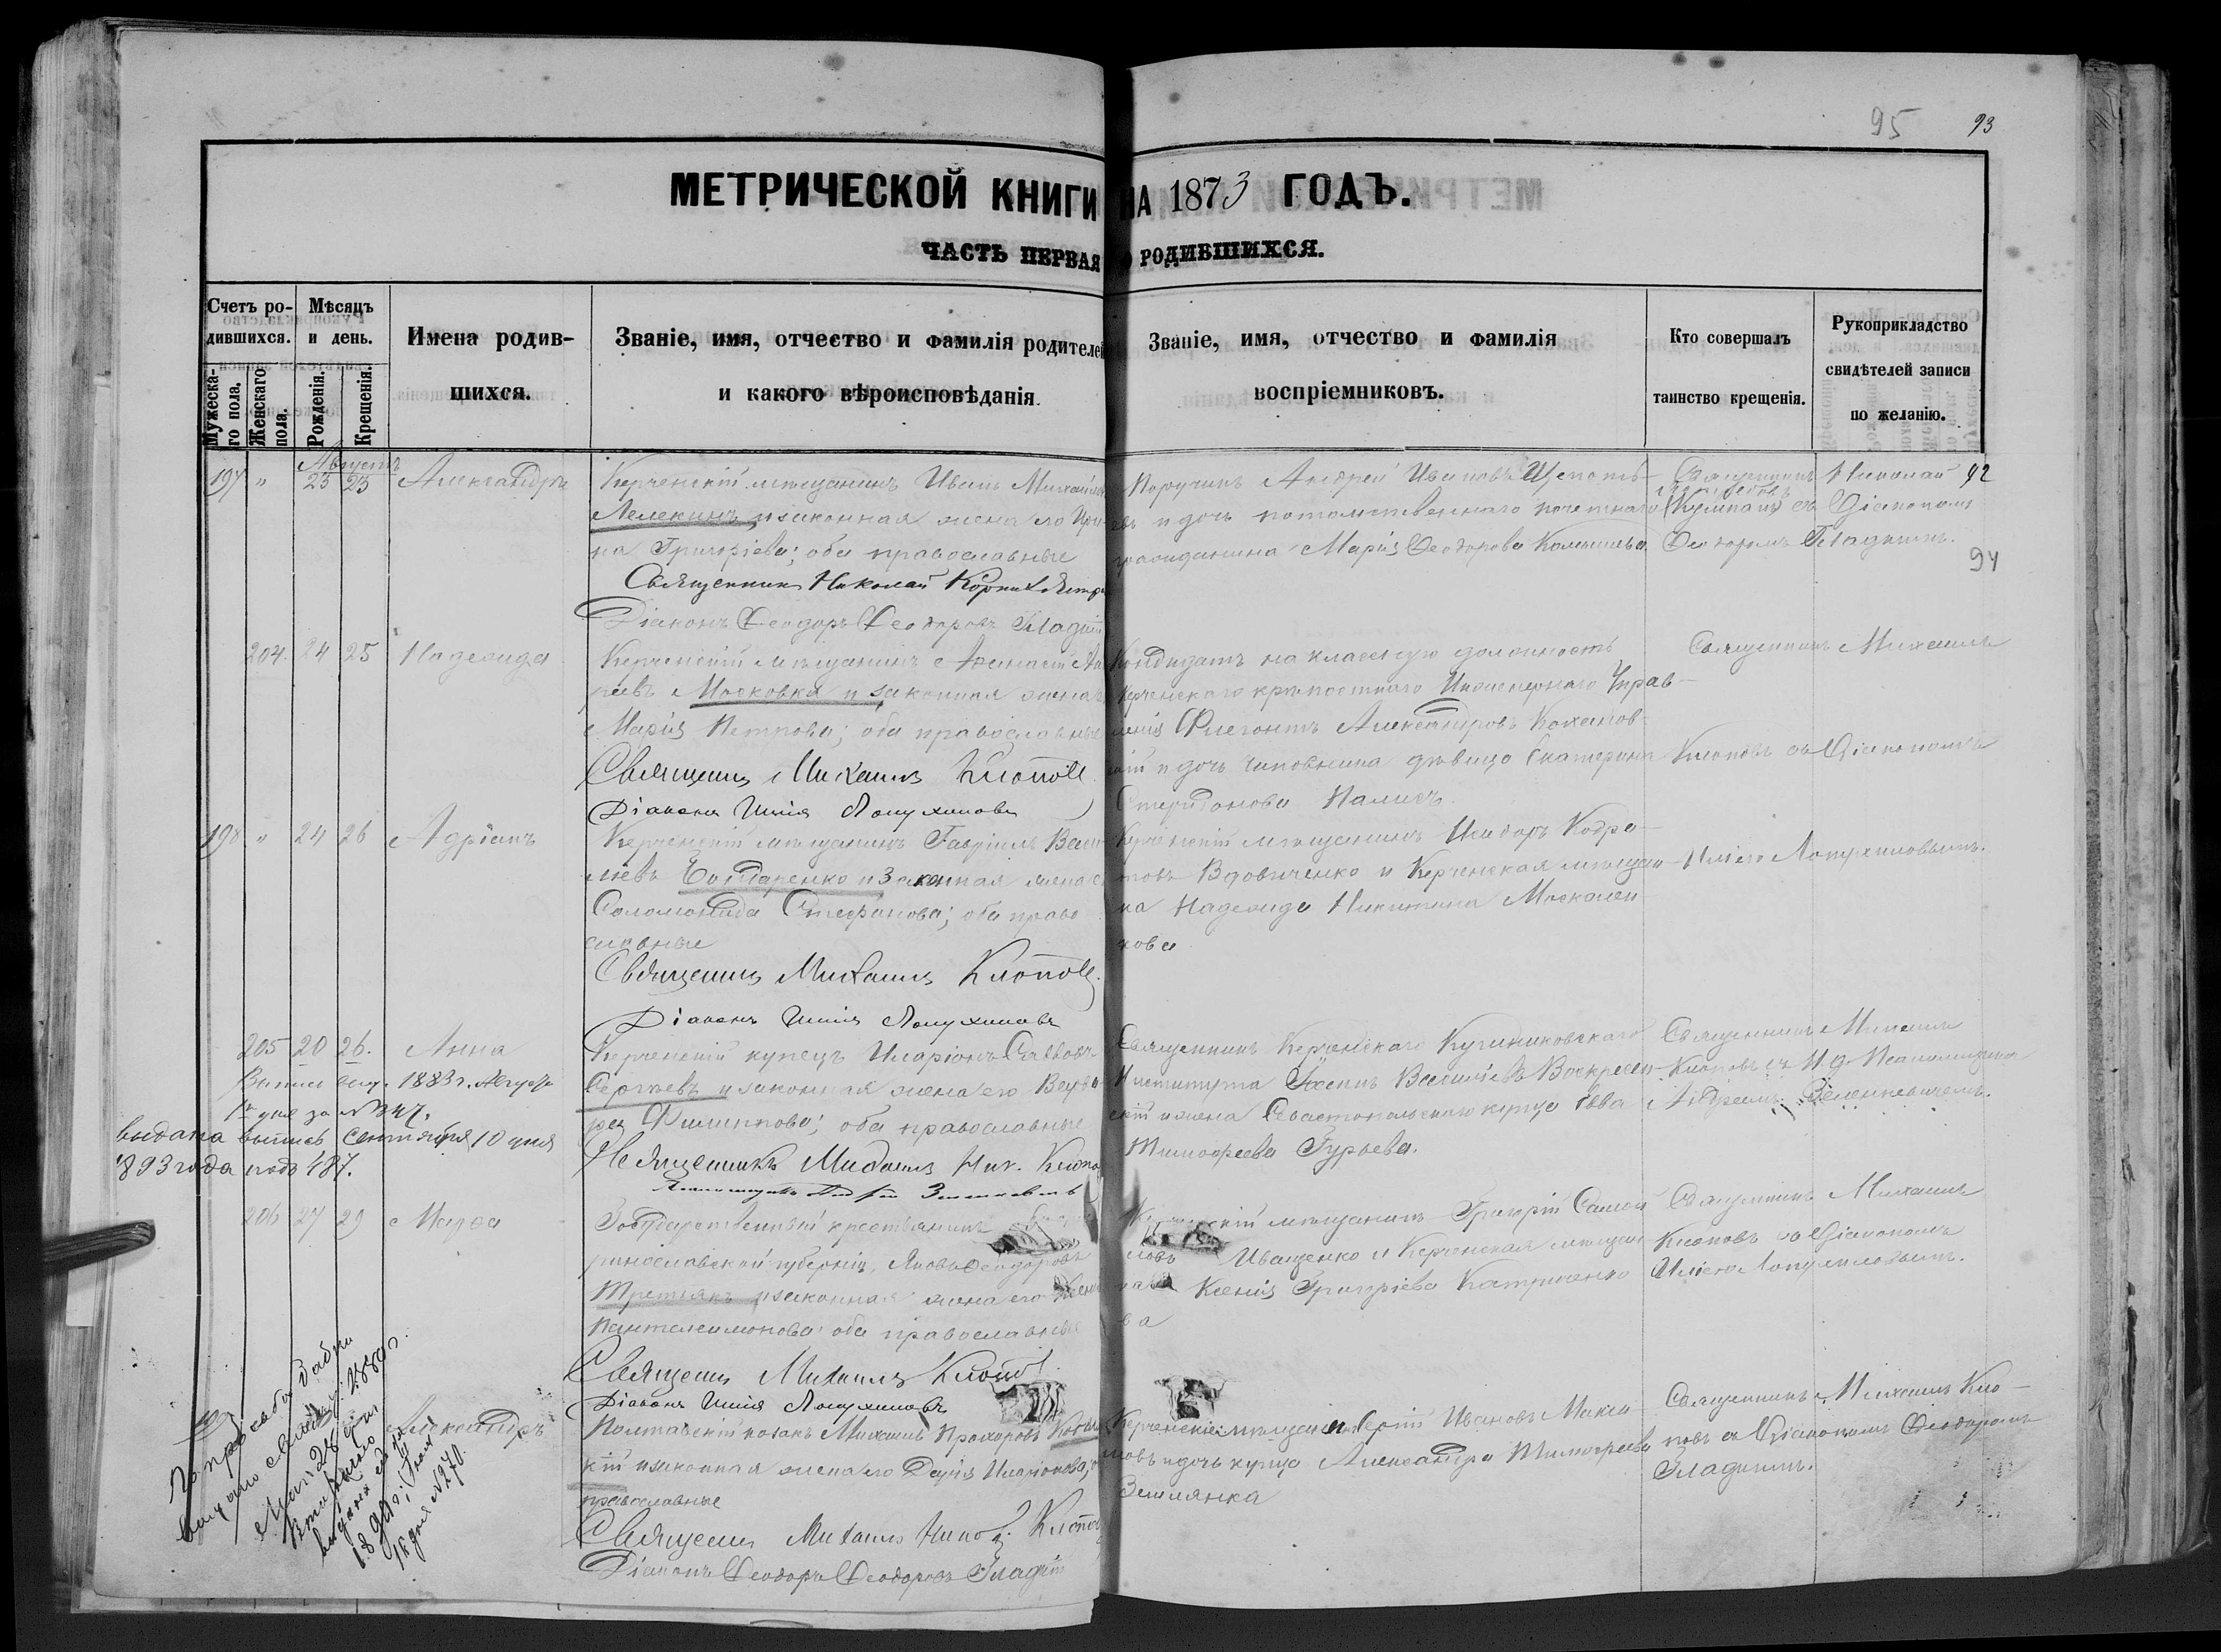 95 93
МЕТРИЧЕСКОЙ КНИГИ НА 1873 ГОДЪ.
ЧАСТЬ ПЕРВАЯ О РОДИВШИХСЯ.
Счетъ ро-
дившихся.
Мужеска-
го пола.
Женскаго
пола.
Мѣсяцъ
и день.
Рожденія.
Крещенія.
Имена родив-
шихся.
Званіе, имя, отчество и фамилія родителей
и какого вѣроисповѣданія
Званіе, имя, отчество и фамилія
воспріемниковъ.
Кто совершалъ
таинство крещенія.
Рукоприкладство
свидѣтелей записи
по желанію.
Августъ
197 " 23 25 Александръ
Керченскій мѣщанинъ Иванъ
Лелекинъ и законная жена его
на Григоріева; оба православные
Священникъ Николай
Діаконъ Ѳеодоръ Ѳеодоровъ Гладкій
Поручикъ Андрей Ивановъ Щепоть-
евъ и дочь потомственнаго почетнаго
гражданина Марія Ѳеодорова
Священникъ Николай 92
съ Діакономъ
Ѳеодоромъ Гладкимъ.
94
204. 24 25 Надежда
Керченскій мѣщанинъ Аѳанасій
Московка и законная жена
Марія Петрова; оба православные
Священникъ Михаилъ Клоповъ
Діаконъ Илія Лопухиновъ
Кандидатъ на классную должность
Керченскаго крѣпостнаго Инженернаго Управ-
ленія Флегонтъ Александровъ Коханов-
скій и дочь чиновника дѣвица Екатерина
Спиридонова
Священникъ Михаилъ
Клоповъ съ Діакономъ
Иліею Лопухиновымъ.
198 " 24 26 Адріанъ
Керченскій мѣщанинъ Гавріилъ Васи-
льевъ Бондаренко и законная жена
Соломонида Стефанова; оба право
славные
Священникъ Михаилъ Клоповъ.
Діаконъ Илія Лопухиновъ
Керченскій мѣщанинъ Исидоръ Кодра-
товъ Вдовиченко и Керченская мѣщан-
ка Надежда Никитина Москален
кова
205 20 26. Анна
1883 г. Августа
1 дня за № 347.
выдана выпись Сентября 10 дня
1893 года подъ 487.
Керченскій купецъ Иларіонъ Саввовъ
Сергѣевъ и законная жена его Варва-
ра Филиппова; оба православные
Священникъ Михаилъ Ник. Клоповъ
Священникъ Керченскаго Кушниковскаго
Института Іоаннъ Василіевъ Воскресен-
скій и жена Севастопольскаго купца Евва
Тимоѳеева Гурьева.
Священникъ Михаилъ
Клоповъ съ И. д. Псаломщика
Андреемъ Зеленкевичемъ.
206 27 29 Марѳа
Государственный крестьянинъ
ринославской губерніи, Яковъ Ѳеодоровъ
Третьякъ и законная жена его
Пантелеимонова; оба православные
Священникъ Михаилъ Клоповъ
Діаконъ Илія Лопухиновъ
мѣщанинъ Григорій Самой
ловъ Иващенко и Керченская мѣщан
Ксенія Григоріева Катриченко
ва
Священникъ Михаилъ
Клоповъ съ Діакономъ
Иліею Лопухиновымъ.
Александръ
По просьбѣ
вторично
1890 г.
№ 270.
Полтавскій козакъ Михаилъ Прохоровъ
кій и законная жена его Дарія Иларіонова;
православные
Священникъ Михаилъ Клоповъ
Діаконъ Ѳеодоръ Ѳеодоровъ Гладкій
Керченскій мѣщанинъ Сергій Ивановъ Макси-
мовъ и дочь купца Александра Тимоѳеева
Землянка
Священникъ Михаилъ Кло-
повъ съ Діакономъ Ѳеодоромъ
Гладкимъ.